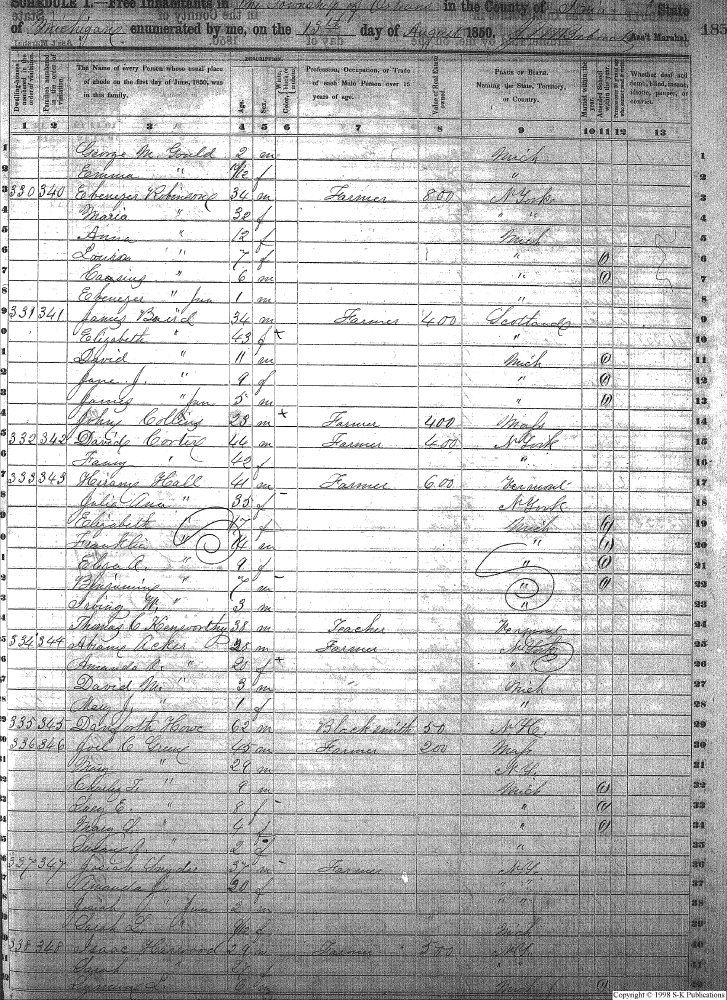 SCHEDULE I.—Free Inhabitants in The Township of in the County of Ionia State
of Michigan enumerated by me, on the 13th day of August 1850. Ass't Marshal. 185
Dwelling-houses numbered in the order of visitation.
Families numbered in the order of visitation.
The Name of every Person whose usual place of abode on the first day of June, 1850, was in this family.
DESCRIPTION.
Age.
Sex.
White, black, or mulatto.
Color,
Profession, Occupation, or Trade of each Male Person over 15 years of age.
Value of Real Estate owned
PLACE OF BIRTH. Naming the State, Territory, or Country.
Married within the year.
Attended School within the year.
Whether deaf and dumb, blind, insane, idiotic, pauper, or convict.
1 2 3 4 5 6 7 8 9 10 11 12 13
1 George M. Gould 2 m Mich 1
2 Emma " f " 2
3 330 340 Ebenezer Robinson 34 m Farmer 800 N York 3
4 Maria " 32 f " " 4
5 Anna " 12 f Mich 5
6 Louisa " 7 f " 1 6
7 Cassius " 6 m " 1 7
8 Ebenezer " Jun 1 m " 8
9 331 341 James Baird 34 m Farmer 400 Scotland 9
Elizabeth " 43 f x " 10
David " 11 m Mich 1 11
Jane J. " 9 f " 1 12
James " Jun 5 m " 1 13
John Collins 23 m x Farmer 400 Mass 14
332 342 David Cortez 44 m Farmer 400 N York 15
Fanny " 42 f " 16
333 343 Hiram Hall 41 m Farmer 600 Vermont 17
Julia Ann " 35 f N York 18
Elizabeth " 17 f Mich 1 19
Franklin " 14 m " 1 20
Eliza A. " 9 f " 1 21
Benjamin " 7 m " 1 22
Irving W. " 3 m " 23
Thomas C Kenworthy 38 m Teacher Vermont 24
334 344 Abram Acker 28 m Farmer N York 25
Amanda " 20 f x " 26
David M. " 3 m " Mich 27
Mary J. " 1 f " 28
335 345 Danforth Howe 62 m Blacksmith 50 N H. 29
336 346 Joel C Green 45 m Farmer 200 Mass 30
" 29 m N.Y. 31
Charles F. " 9 m Mich 1 32
Lucy E. " 8 f " 1 33
Mary " 4 f " 1 34
Susan A. " 2 f " 35
337 347 Josiah Snyder 37 m Farmer N.Y. 36
30 f " " 37
Josiah " Jun 2 m " " 38
Sarah L. " f Mich 39
338 348 Isaac 29 m Farmer 500 N.Y. 40
Sarah " 27 f " " 41
Mich 42
Copyright © 1998 S-K Publications